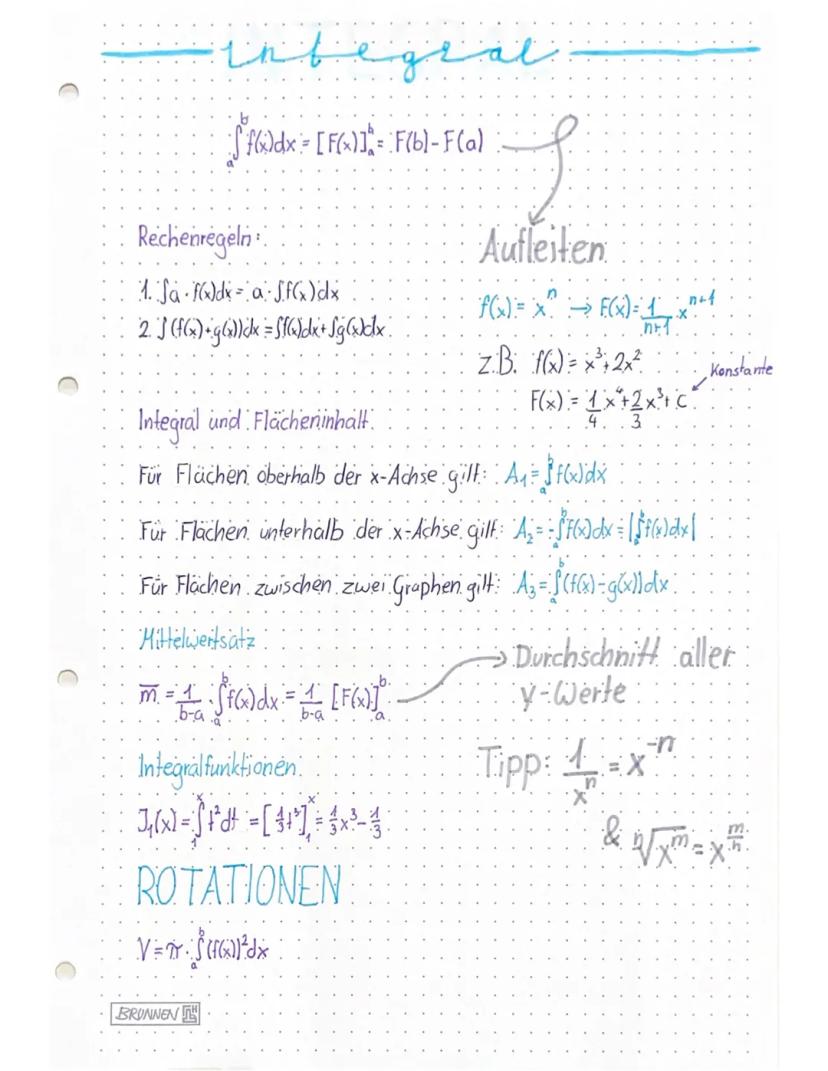 integral
∫ₐᵇ f(x)dx = [F(x)]ₐᵇ = F(b)-F(a)
Aufleiten
f(x) = xⁿ → F(x) = 1/(n+1) xⁿ⁺¹
z.B. f(x) = x³+2x²
F(x) = 1/4 x⁴ + 2/3 x³ + C
Konstante
Rechenregeln:
1. ∫a · f(x)dx = a · ∫f(x)dx
2. ∫(f(x)+g(x))dx = ∫f(x)dx + ∫g(x)dx
Integral und Flächeninhalt
Für Flächen oberhalb der x-Achse gilt: A₁ = ∫ₐᵇ f(x)dx
Für Flächen unterhalb der x-Achse gilt: A₂ = -∫ₐᵇ f(x)dx = |∫ₐᵇ f(x)dx|
Für Flächen zwischen zwei Graphen gilt: A₃ = ∫ₐᵇ (f(x)-g(x))dx
Mittelwertsatz
m̅ = 1/(b-a) · ∫ₐᵇ f(x)dx = 1/(b-a) [F(x)]ₐᵇ
Durchschnitt aller
y-Werte
Integralfunktionen
J₁(x) = ∫₁ˣ t²dt = [1/3 t³]₁ˣ = 1/3 x³ - 1/3
Tipp: 1/xⁿ = x⁻ⁿ
& ⁿ√(xᵐ) = x^(m/n)
ROTATIONEN
V = π · ∫ₐᵇ (f(x))²dx
BRUNNEN